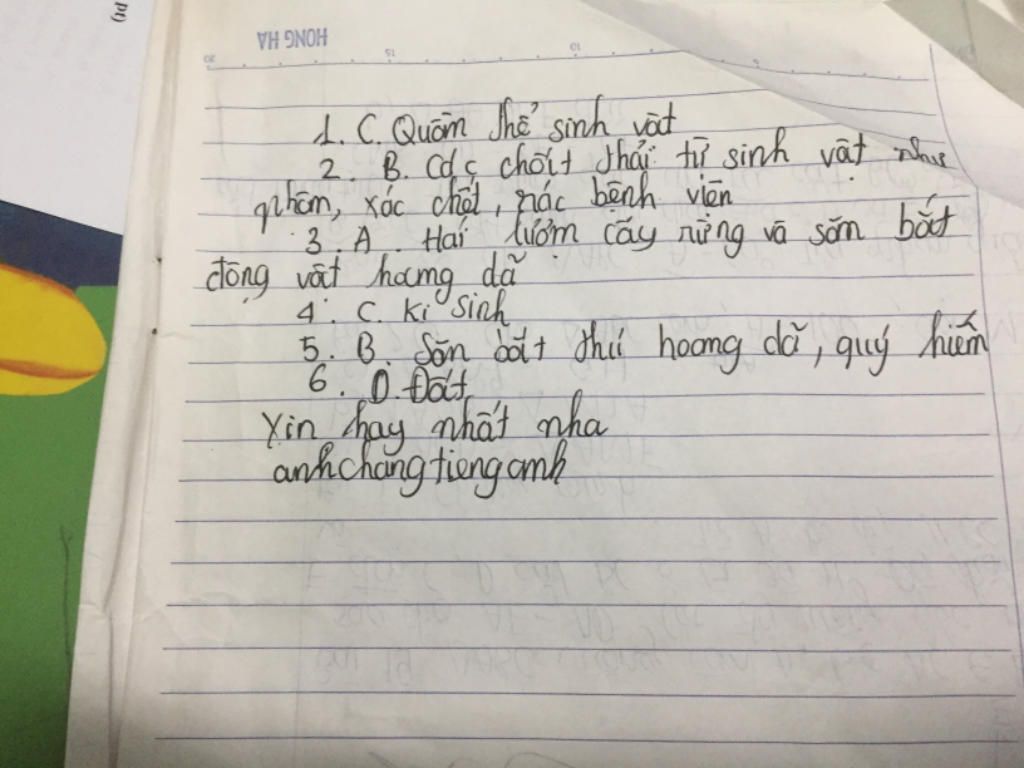 HONG HA
20 15 10 5
1. C. Quần thể sinh vật
2. B. Các chất thải từ sinh vật như
phân, xác chết, rác bệnh viện
3. A. Hái lượm cây rừng và săn bắt
động vật hoang dã
4. C. Kí sinh
5. B. Săn bắt thú hoang dã, quý hiếm
6. D. Đất
Xin hay nhất nha
anhchangtienganh